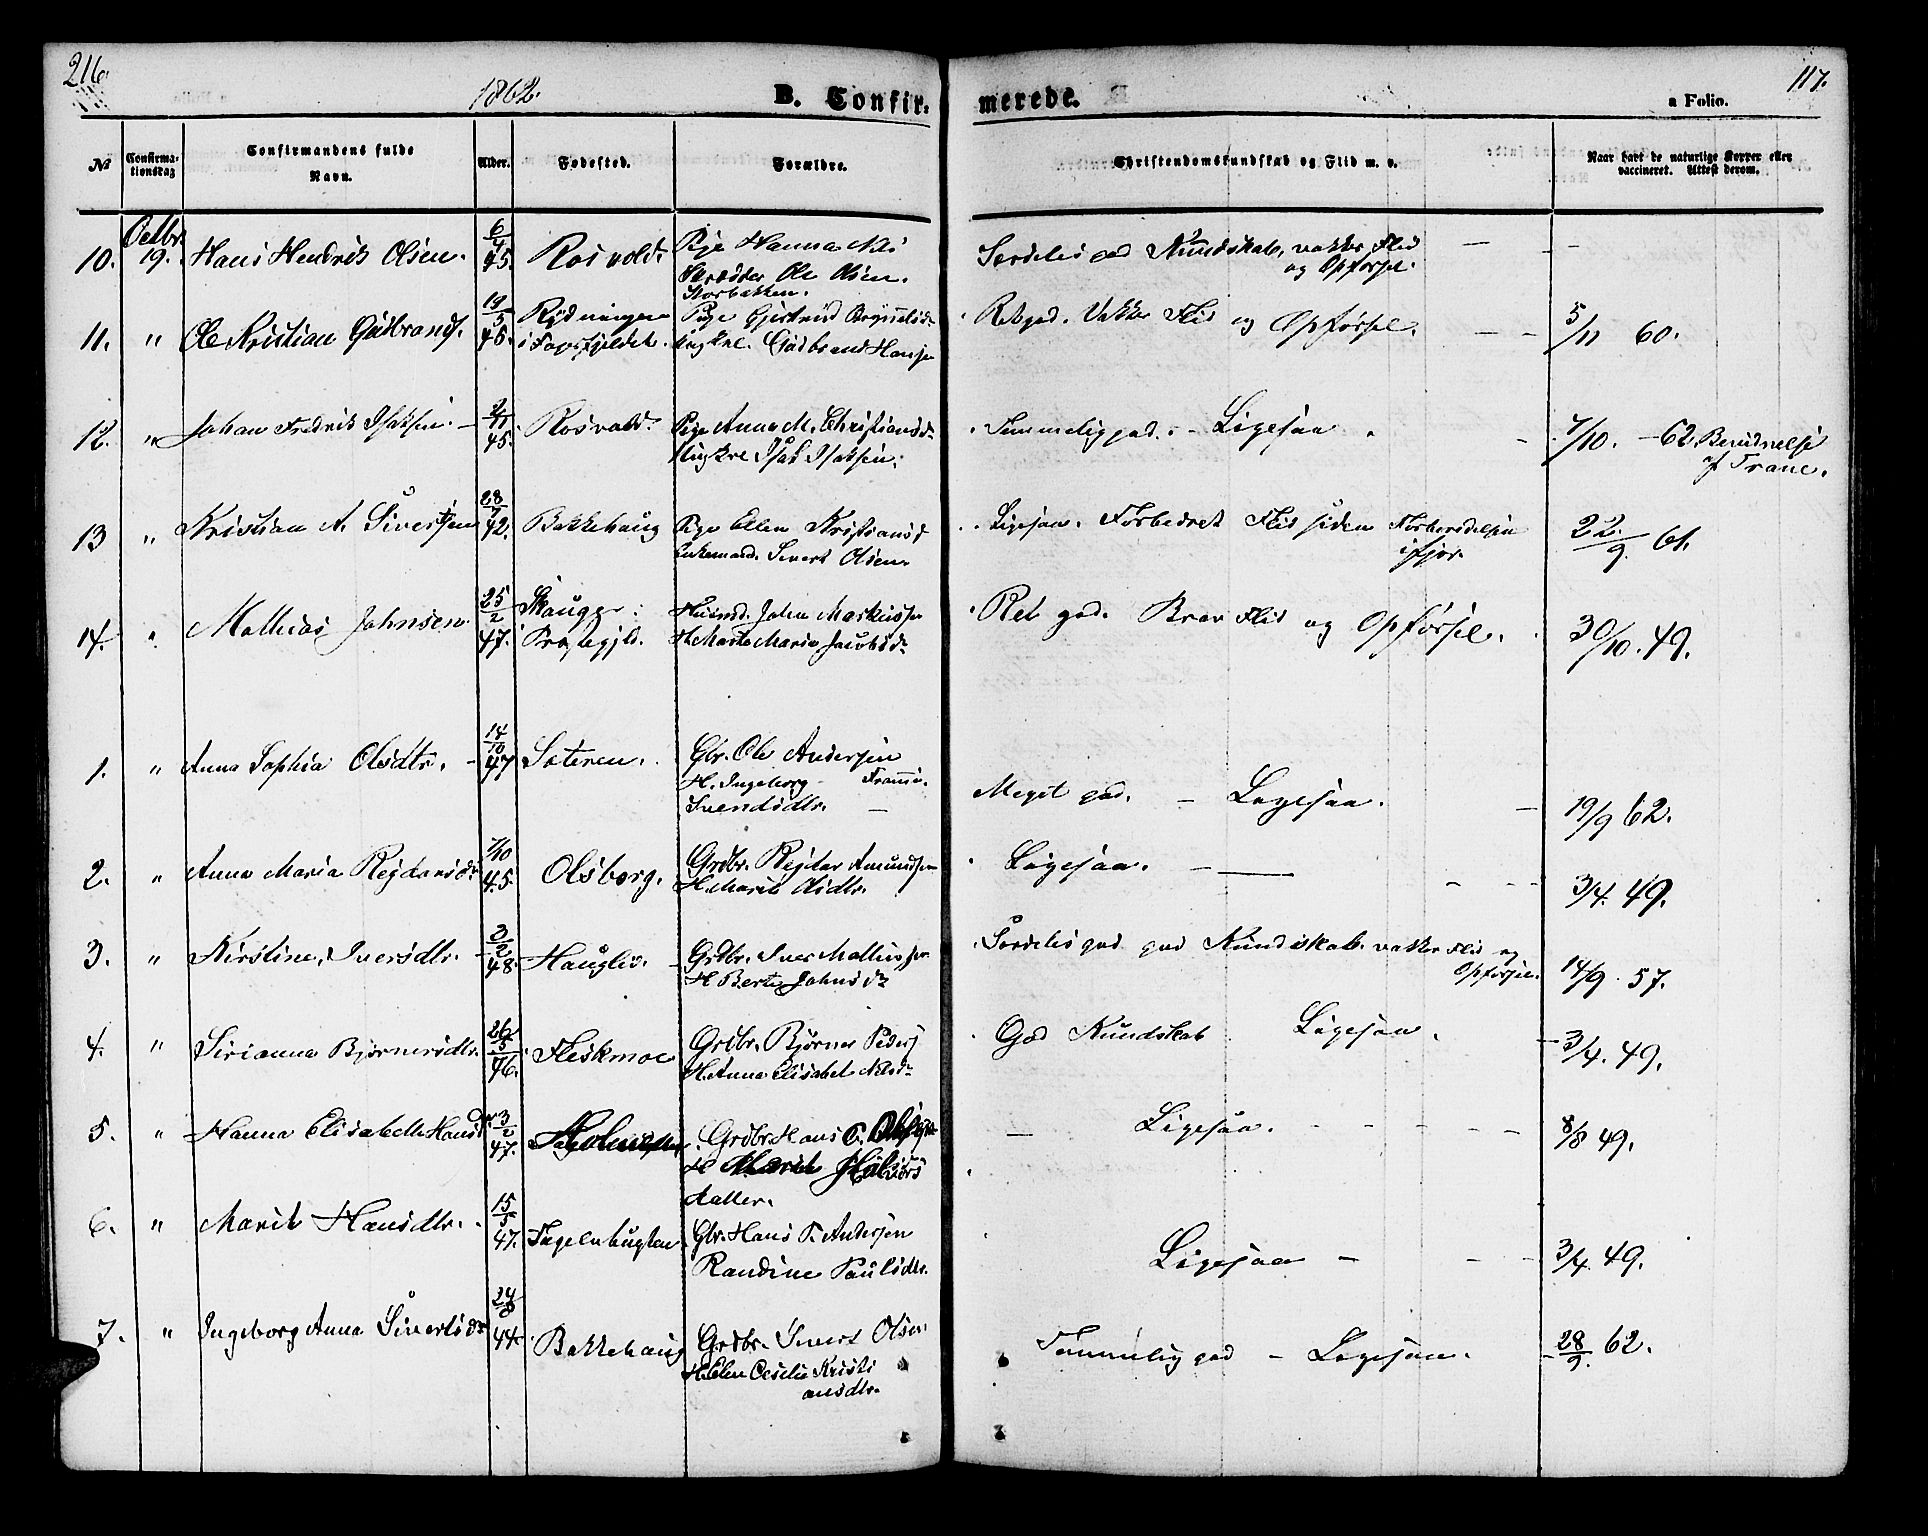 216.
1862.
B. Confir-
merede.
117.
a Folio.
No
Confirma-
tionsdag
Confirmandens fulde
Navn.
Alder.
Fødested.
Forældre.
Christendomskundskab og Flid m. v.
Naar havt de naturlige Kopper eller
vaccineret. Attest derom.
10. Octbr. 19. Hans Hendrik Olsen. 6/4 45. Rosvold. Pige Hanna
Ole Olsen.
Storbakken.
Særdeles god Kundskab, vakker Flid — —
og Opførsel.
11. " Ole Kristian Gulbrands. 19/5 45. Rydningen Pige Gjertrud
i Fagerfjeldet. Ungkrl. Gulbrand Hansen
Retgod. Vakker Flid og Opførsel. — — 5/11 60.
12. " Johan Fredrik Isaksen. 2/11 45. Rosvold. Pige Anna M. Christiansd.
Ungkrl Isak Isaksen.
Temmelig god. - Ligesaa 7/10. -62. Berudnelse
af Trane.
13 " Kristian A. Sivertsen 28/7 42. Bakkehaug Pige Ellen Kristiansd
Enkemand. Sivert Olsen.
Ligesaa. Forbedret Flid siden
ifjor.
22/9. 61.
14. " Mathias Johnsen. 25/2 47. Skauge Husmd. John Markussen
Præstegjld. H. Marte Maria Jacobsd.
Ret god. Brav Flid og Opførsel. 30/10. 49.
1. " Anna Sophia Olsdtr. 14/10 47 Sæteren. Gbr. Ole Andersen
H. Ingeborg
Svendsdtr. —
Meget god. — Ligesaa. — 19/9 62.
2. " Anna Maria Rejdarsd. 7/10 45. Olsborg. Grdbr. Rejdar Amundsen
H. Marit Olsdtr.
Ligesaa. — 3/4. 49.
3. " Kirstine Iversdtr. 3/2 48. Hauglie. Grdbr. Iver Mathissen
H Berte Johnsd.
Særdeles god god Kundskab. vakker Flid og
Opførsel. 14/9 57.
4. " Sirianna Bjørnersdtr. 26/5 46. Fleskmoe Grdbr. Bjørner Peders
H. Anna Elisabet Nilsd.
God Kundskab Ligesaa. 3/4. 49.
5. " Hanna Elisabeth Hansd. 3/2 47. Grdbr Hans
H Marit Halvors
datter.
— Ligesaa. - - - - - 8/8 49.
6. " Marit Hansdtr. 15/5 47. Gbr. Hans P. Andersen
Randine Paulsdtr.
Ligesaa — — 3/4. 49.
7. " Ingeborg Anna Sivertsdr 44. Bakkehaug Grdbr. Sivert Olsen
H. Elen Cesilie Kristi
ansdtr.
Temmelig god — Ligesaa. 28/9. 62.